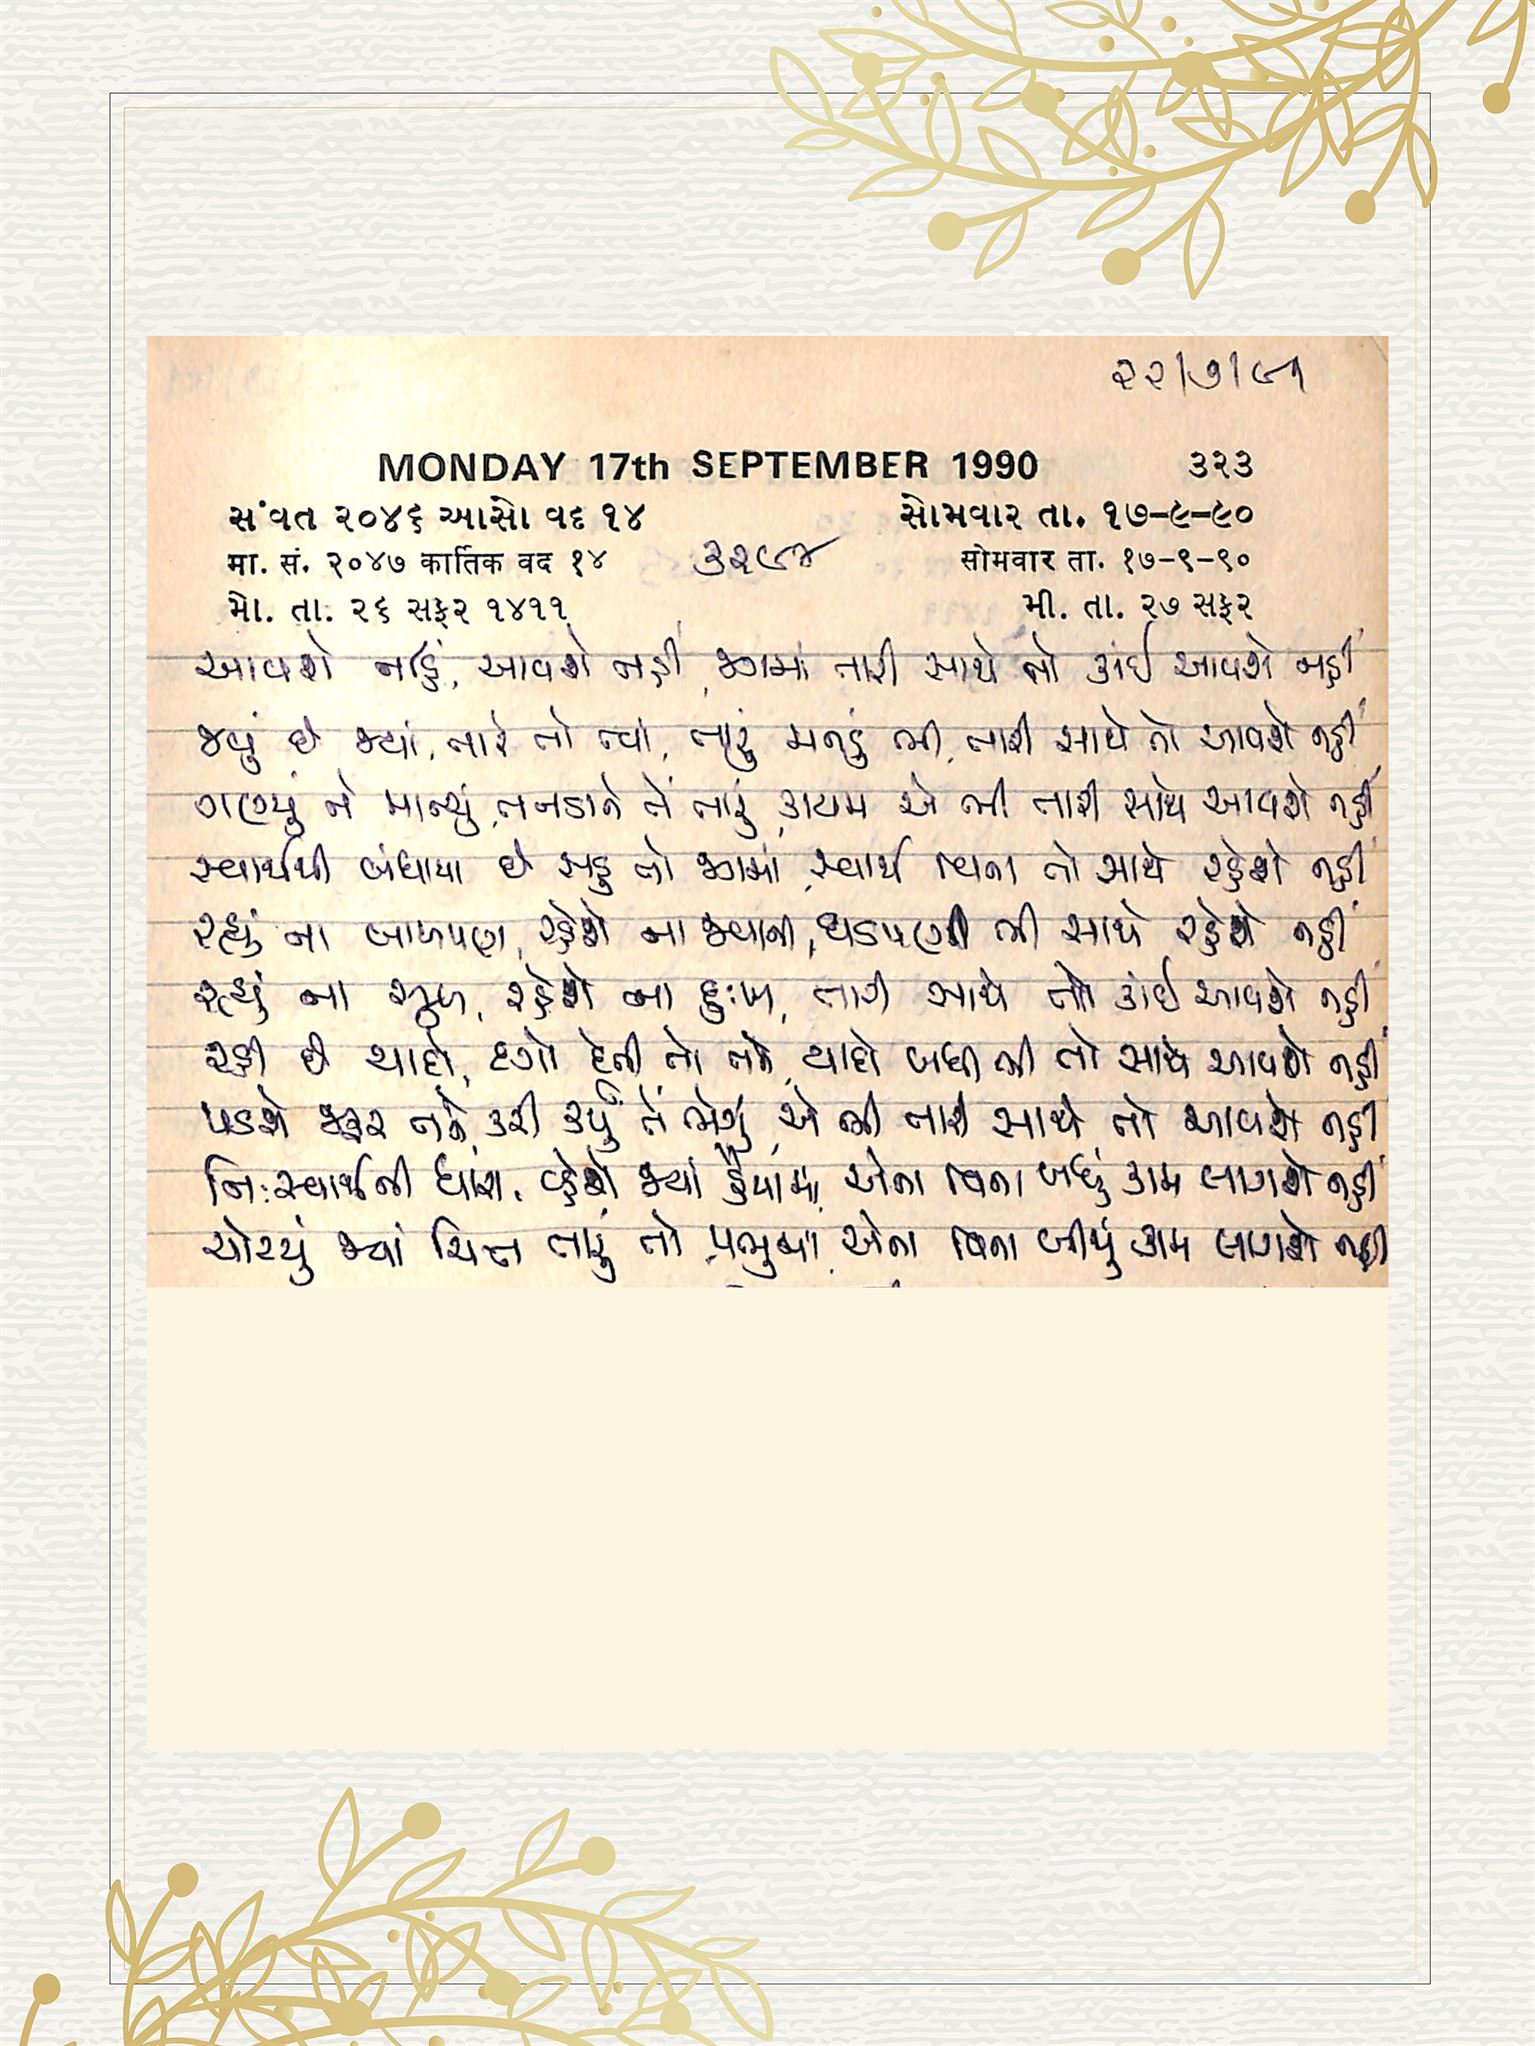 ૨૨/૭/૯૧
MONDAY 17th SEPTEMBER 1990 ૩૨૩
સંવત ૨૦૪૬ આસો વદ ૧૪ સોમવાર તા. ૧૭-૯-૯૦
મા. સં. ૨૦૪૭ कार्तिक वद १४ ૩૨૯૪ सोमवार ता. १७-९-९०
મો. તા. ૨૬ સફર ૧૪૧૧ મી. તા. ૨૭ સફર
આવશે નહીં, આવશે નહીં, જગમાં તારી સાથે તો કાંઈ આવશે નહીં
જવું છે જ્યાં, તારે તો ત્યાં, તારું મનડું ભી, તારી સાથે તો આવશે નહીં
ગણ્યું ને માન્યું, તનડાને તેં તારું, કાયમ એ ભી તારી સાથે આવશે નહીં
સ્વાર્થથી બંધાયા છે સહુ તો જગમાં, સ્વાર્થ વિના તો સાથે રહેશે નહીં
રહ્યું ના બાળપણ, રહેશે ના જ્વાની, ઘડપણ ભી સાથે રહેશે નહીં
રહ્યું ના સુખ, રહેશે ના દુઃખ, તારી સાથે તો કાંઈ આવશે નહીં
રહી છે યાદો, દગો દેતી તો તને, યાદો બધી ભી તો સાથે આવશે નહીં
પડશે જરૂર તને કરી કર્યું તેં ભેગું, એ ભી તારી સાથે તો આવશે નહીં
નિઃસ્વાર્થની ધારા, વ્હેશે જ્યાં હૈયામાં, એના વિના બધું કામ લાગશે નહીં
ચોરયું જ્યાં ચિત્ત તારું તો પ્રભુમાં, એના વિના બીજું કામ લાગશે નહીં